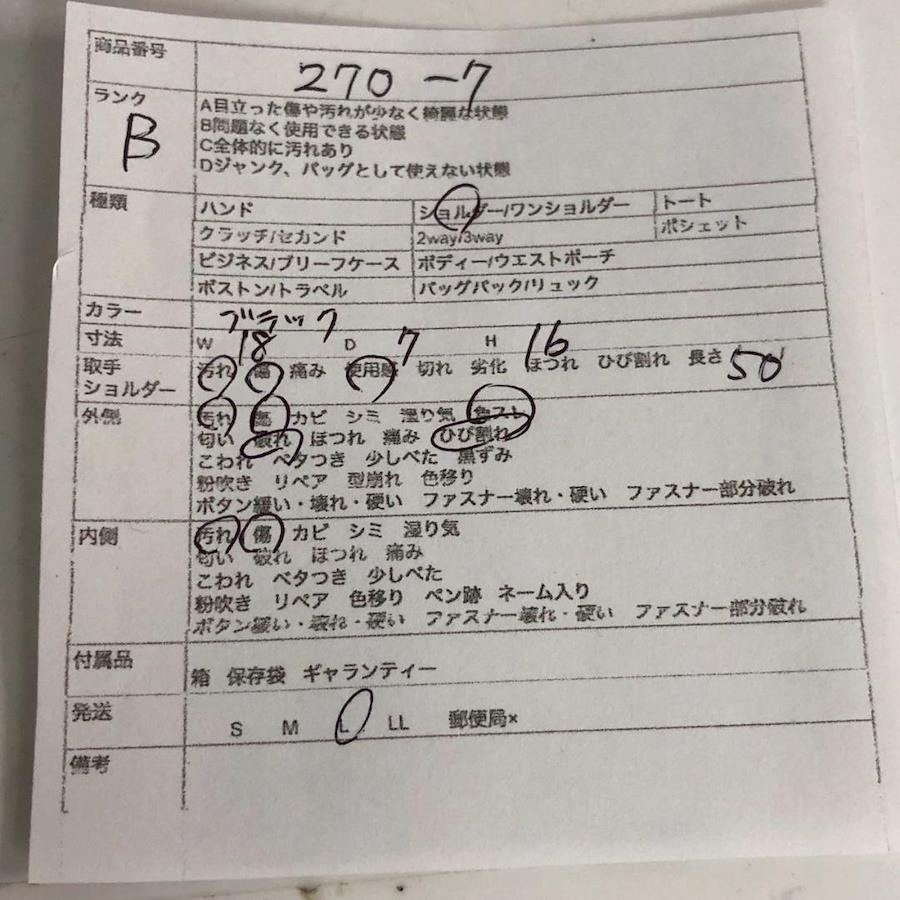 商品番号 270-7
ランク B
A目立った傷や汚れが少なく綺麗な状態
B問題なく使用できる状態
C全体的に汚れあり
Dジャンク、バッグとして使えない状態
種類 ハンド ショルダー/ワンショルダー トート
クラッチ/セカンド 2way/3way ポシェット
ビジネス/ブリーフケース ボディー/ウエストポーチ
ボストン/トラベル バッグパック/リュック
カラー ブラック
寸法 W 18 D 7 H 16
取手 汚れ 傷 痛み 使用感 切れ 劣化 ほつれ ひび割れ 長さ 50
ショルダー
外側 汚れ 傷 カビ シミ 湿り気 色スレ
匂い 破れ ほつれ 痛み ひび割れ
こわれ ベタつき 少しべた 黒ずみ
粉吹き リペア 型崩れ 色移り
ボタン緩い・壊れ・硬い ファスナー壊れ・硬い ファスナー部分破れ
内側 汚れ 傷 カビ シミ 湿り気
匂い 破れ ほつれ 痛み
こわれ ベタつき 少しべた
粉吹き リペア 色移り ペン跡 ネーム入り
ボタン緩い・壊れ・硬い ファスナー壊れ・硬い ファスナー部分破れ
付属品 箱 保存袋 ギャランティー
発送 S M L LL 郵便局×
備考